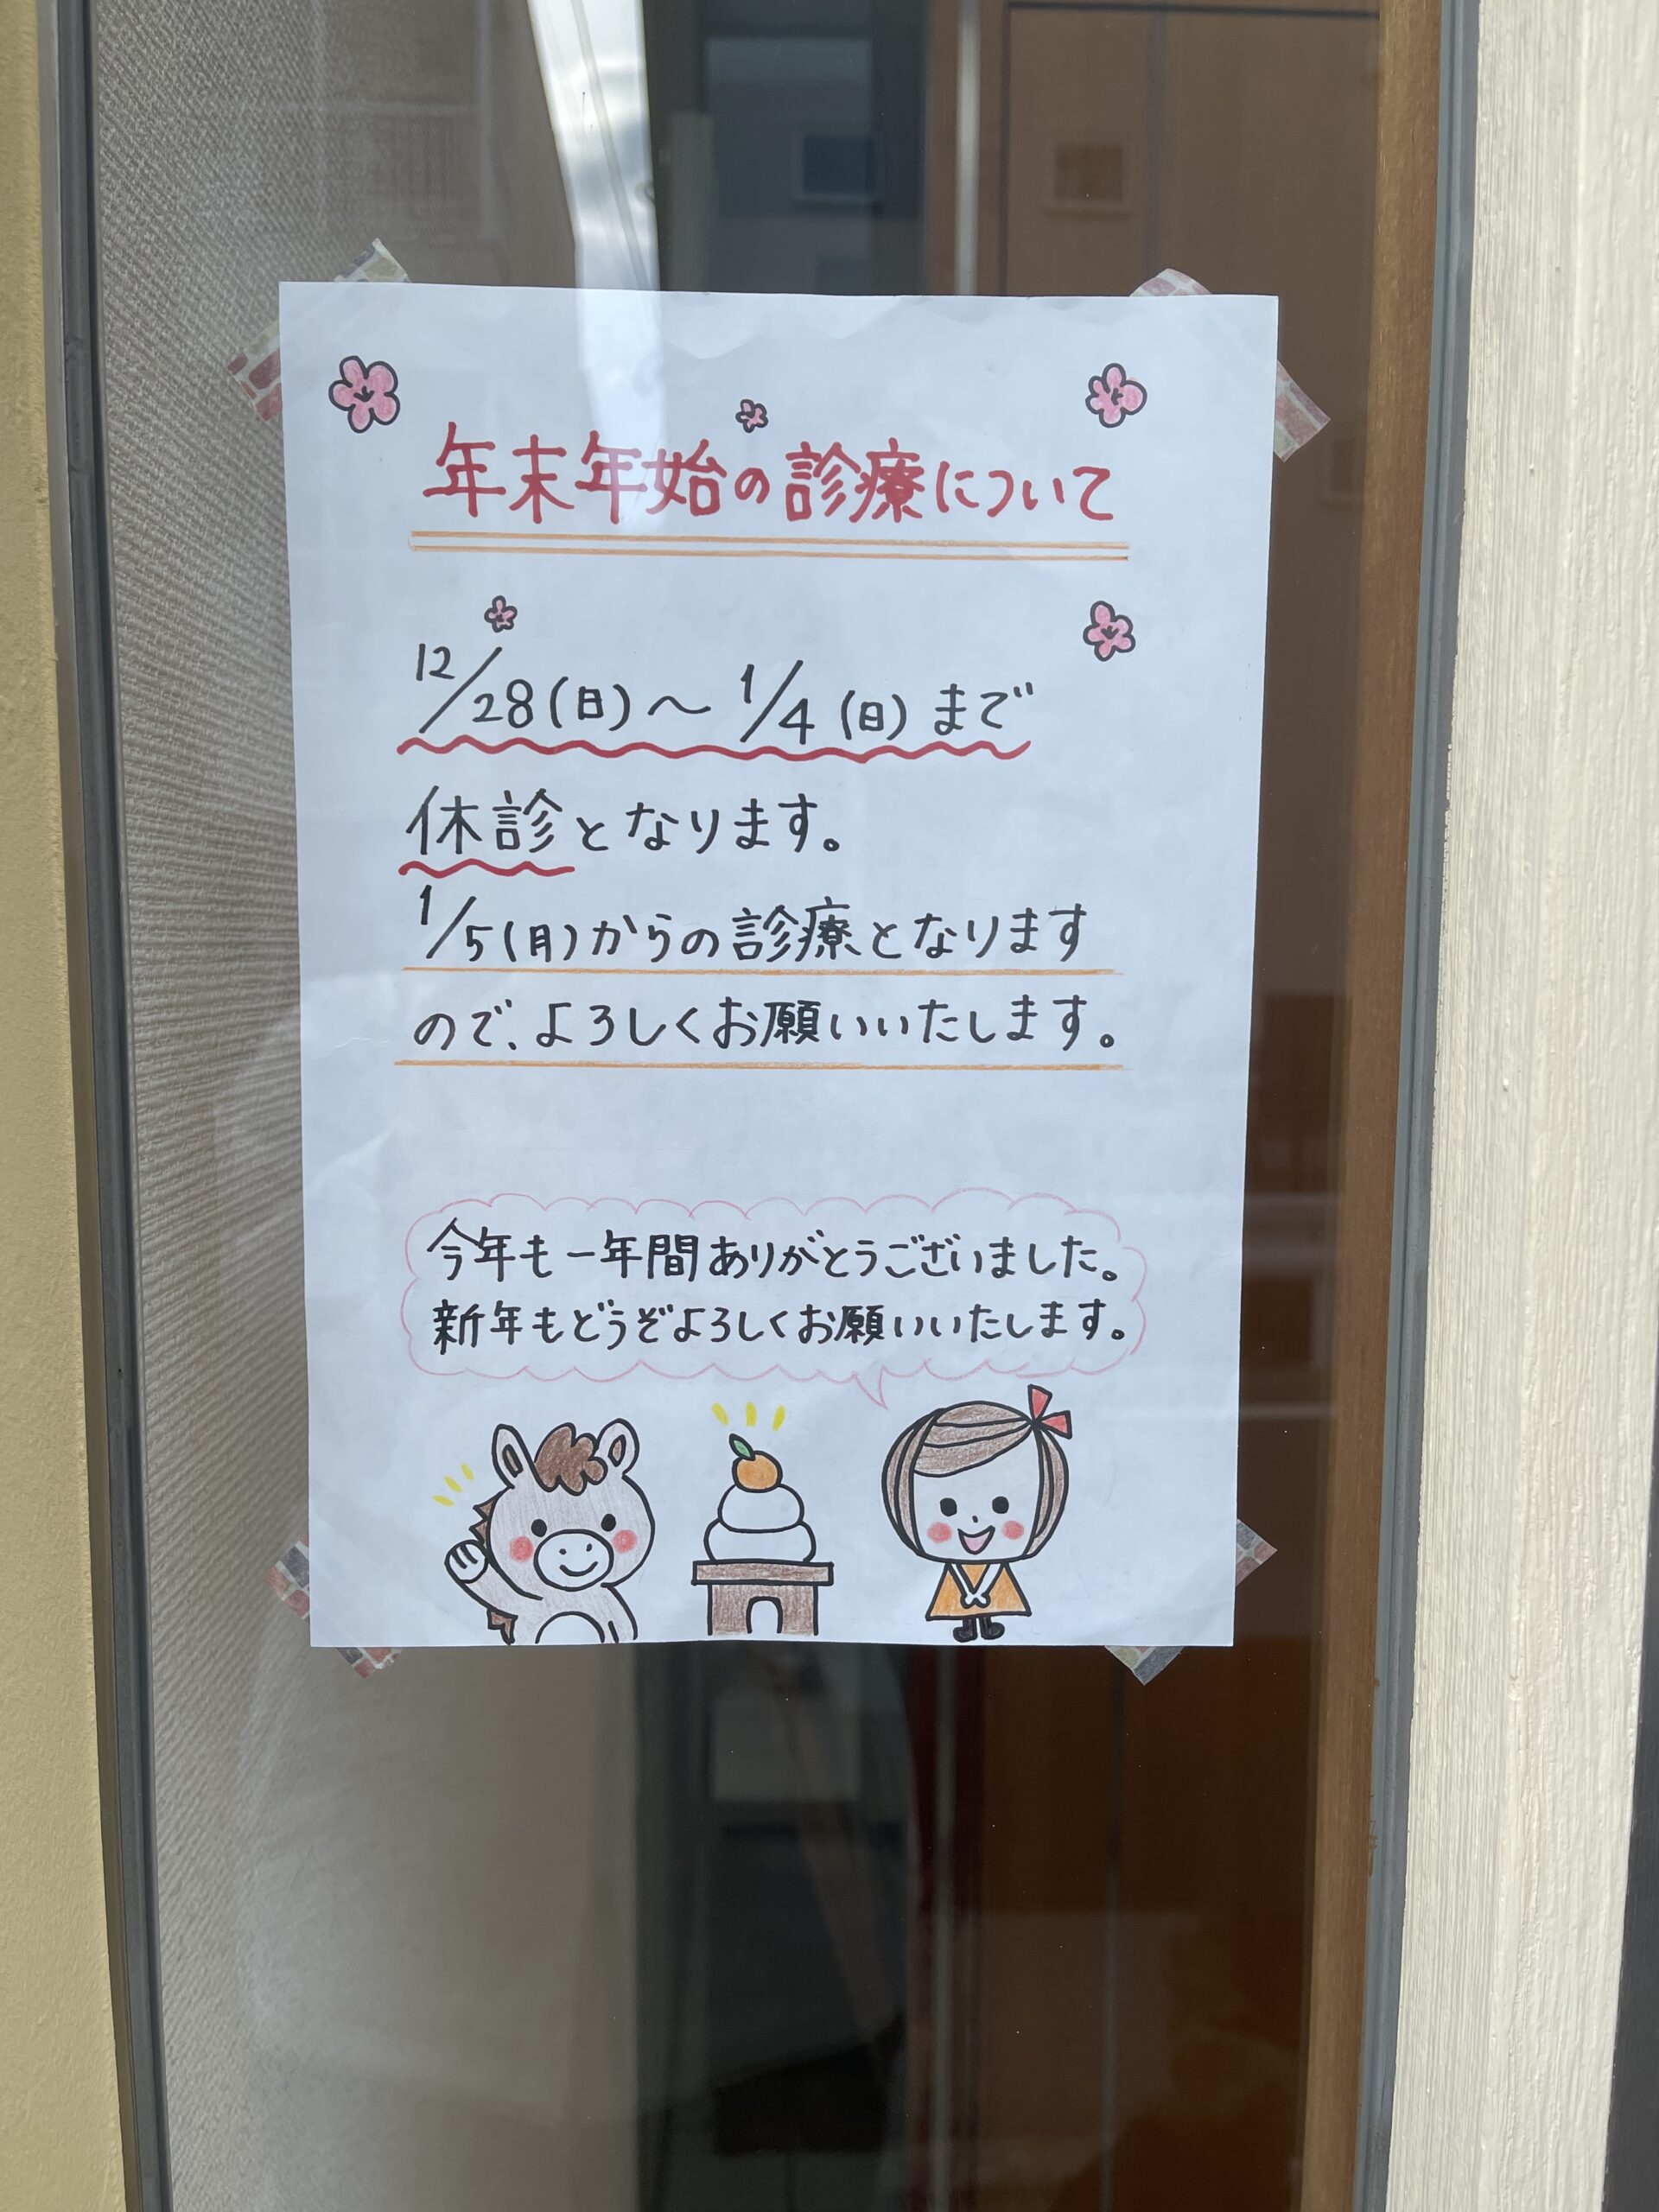 年末年始の診療について
12/28(日)～1/4(日)まで
休診となります。
1/5(月)からの診療となります
ので、よろしくお願いいたします。
今年も一年間ありがとうございました。
新年もどうぞよろしくお願いいたします。